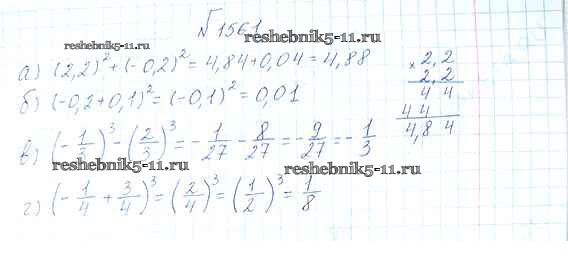 №1561
reshebnik5-11.ru
reshebnik5-11.ru
а) (2,2)² + (-0,2)² = 4,84 + 0,04 = 4,88
б) (-0,2 + 0,1)² = (-0,1)² = 0,01
в) (-1/3)³ - (2/3)³ = -1/27 - 8/27 = -9/27 = -1/3
reshebnik5-11.ru
reshebnik5-11.ru
г) (-1/4 + 3/4)³ = (2/4)³ = (1/2)³ = 1/8
× 2,2
2,2
4 4
4 4
4,8 4